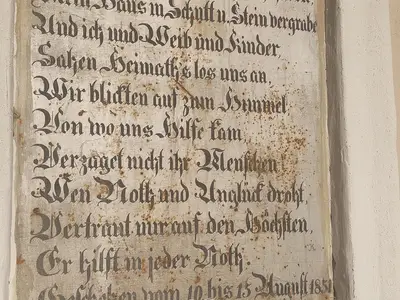 Mein Haus in Schutt u. Stein vergrabe
Und ich und Weib und Kinder
Sahen Heimathslos uns an,
Wir blickten auf zum Himmel
Von wo uns Hilfe kam
Verzaget nicht ihr Menschen
Wen Noth und Unglück droht,
Vertraut nur auf den Höchsten,
Er hilft in jeder Noth.
Geschehen vom 10 bis 15 August 1851